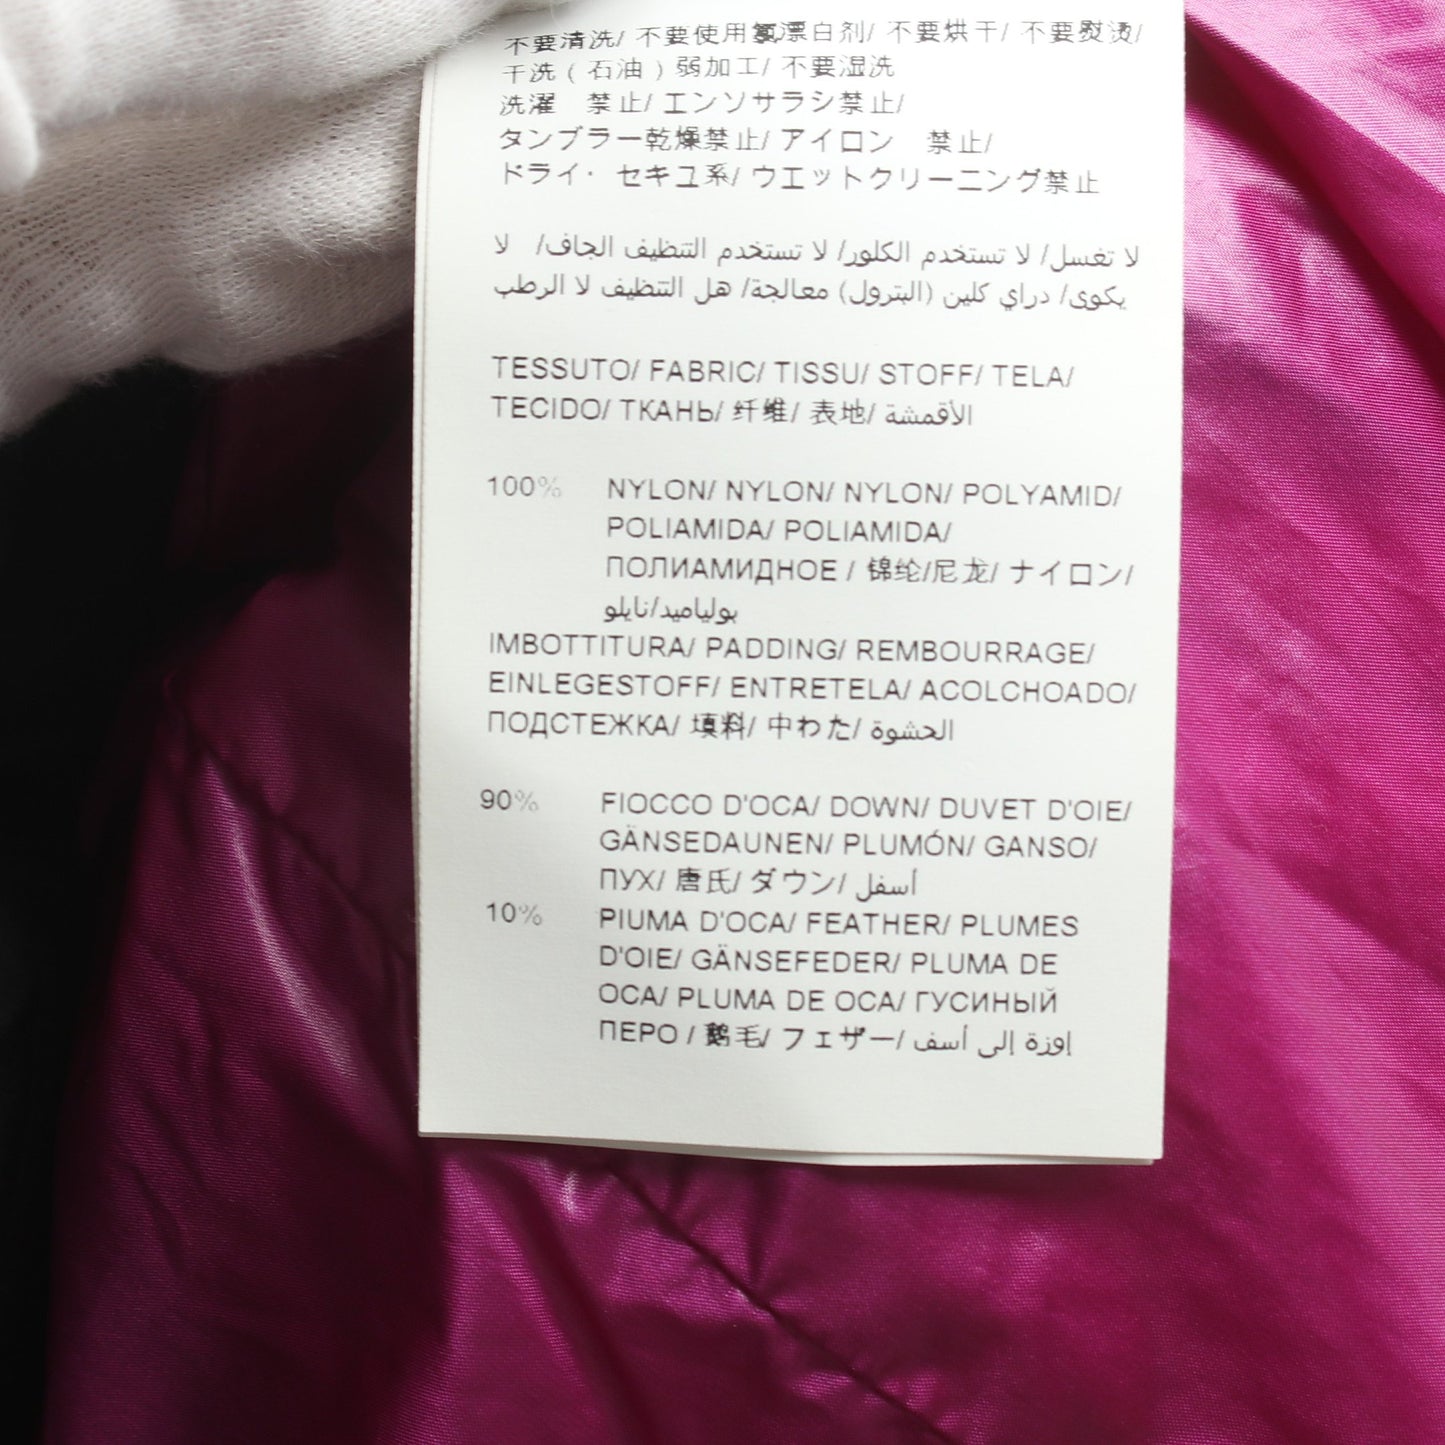 不要清洗/ 不要使用氯漂白剂/ 不要烘干/ 不要熨烫/
干洗 ( 石油 ) 弱加工/ 不要湿洗
洗濯　禁止/ エンソサラシ禁止/
タンブラー乾燥禁止/ アイロン　禁止/
ドライ・ セキユ系/ ウエットクリーニング禁止
لا تغسل/ لا تستخدم الكلور/ لا تستخدم التنظيف الجاف/ لا
يكوى/ دراي كلين (البترول) معالجة/ هل التنظيف لا الرطب
TESSUTO/ FABRIC/ TISSU/ STOFF/ TELA/
TECIDO/ ТКАНЬ/ 纤维/ 表地/ الأقمشة
100% NYLON/ NYLON/ NYLON/ POLYAMID/
POLIAMIDA/ POLIAMIDA/
ПОЛИАМИДНОЕ / 锦纶/尼龙/ ナイロン/
بولياميد/نايلو
IMBOTTITURA/ PADDING/ REMBOURRAGE/
EINLEGESTOFF/ ENTRETELA/ ACOLCHOADO/
ПОДСТЕЖКА/ 填料/ 中わた/ الحشوة
90% FIOCCO D'OCA/ DOWN/ DUVET D'OIE/
GÄNSEDAUNEN/ PLUMÓN/ GANSO/
ПУХ/ 唐氏/ ダウン/ أسفل
10% PIUMA D'OCA/ FEATHER/ PLUMES
D'OIE/ GÄNSEFEDER/ PLUMA DE
OCA/ PLUMA DE OCA/ ГУСИНЫЙ
ПЕРО / 鹅毛/ フェザー/ إوزة إلى أسف